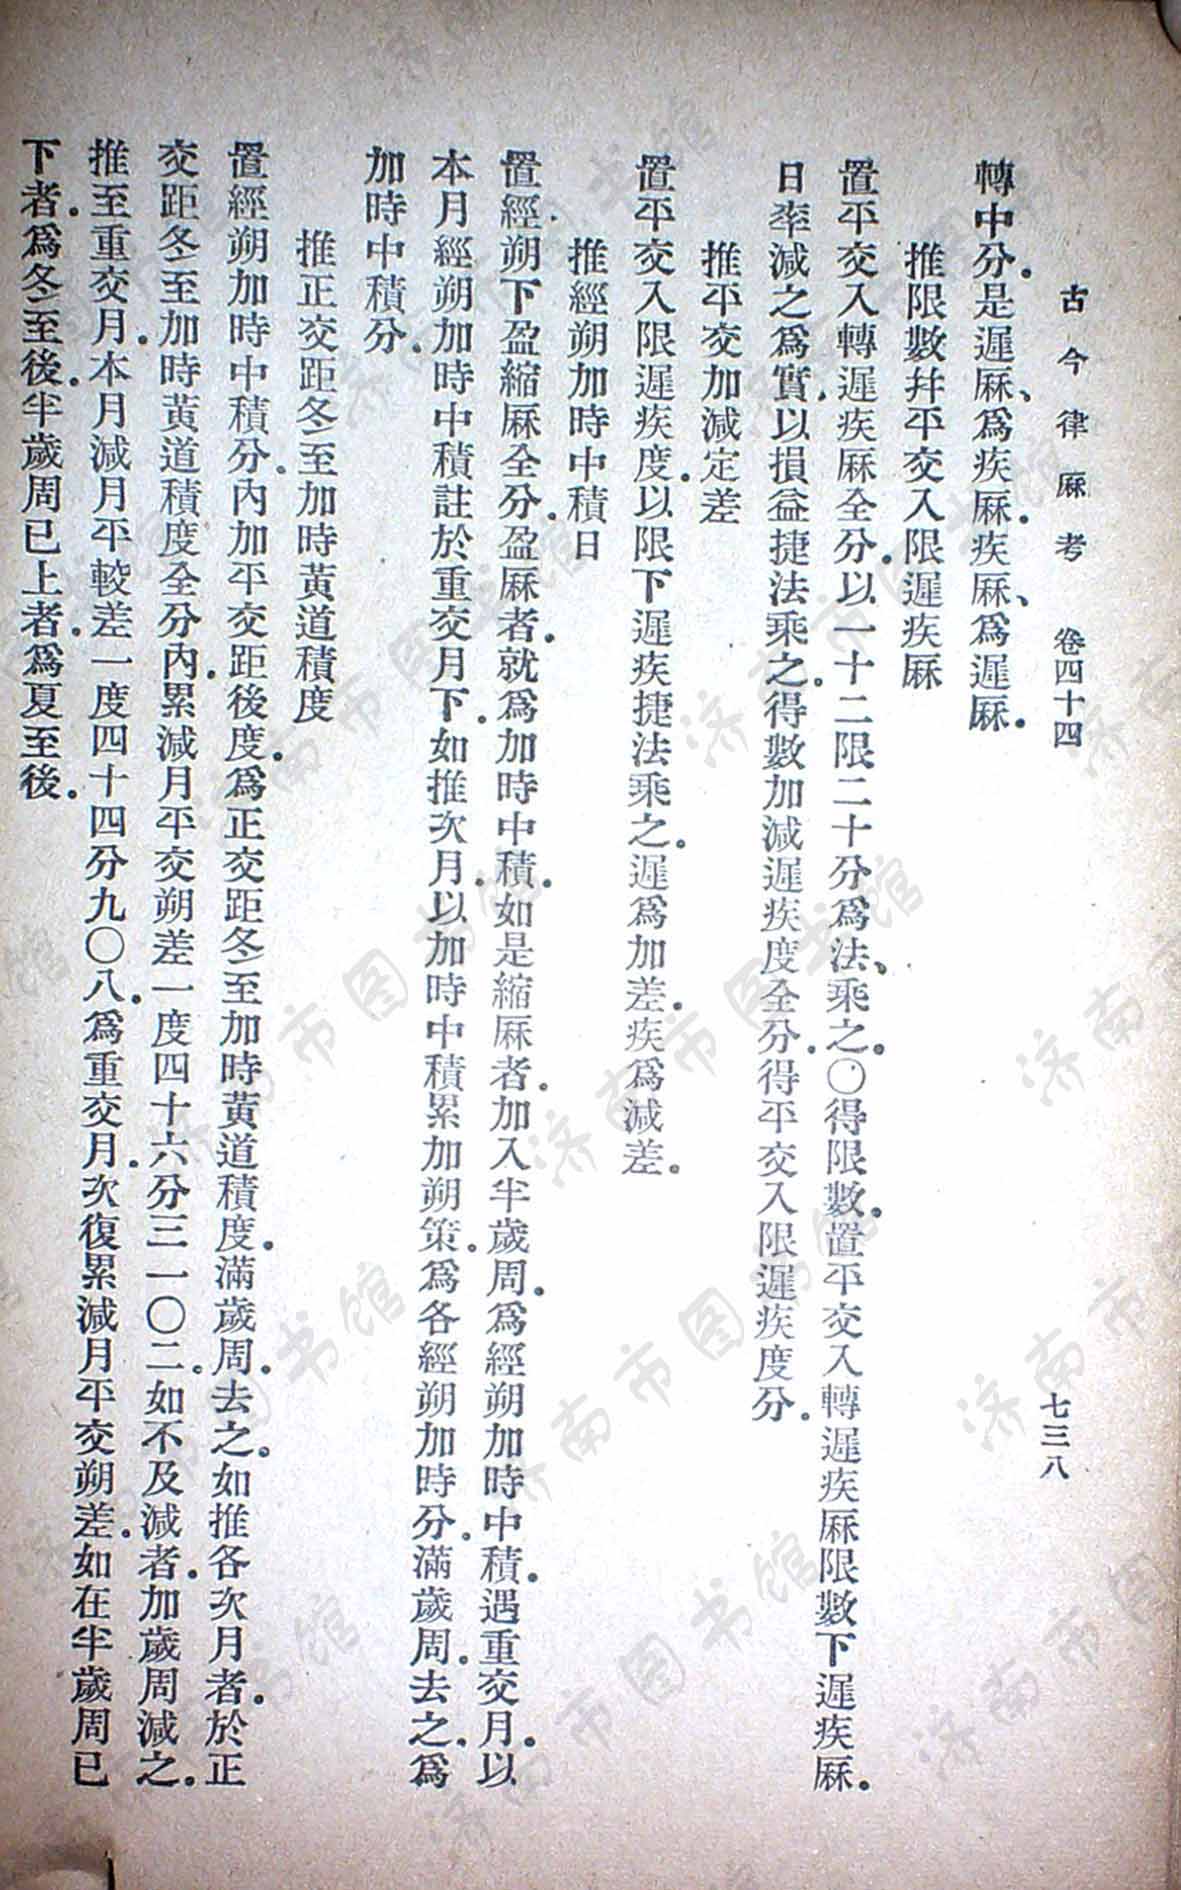 古今律厤考　卷四十四　七三八
轉中分。是遲厤、爲疾厤。疾厤、爲遲厤。
推限數幷平交入限遲疾厤
置平交入轉遲疾厤全分。以一十二限二十分爲法、乘之。〇得限數。置平交入轉遲疾厤限數下遲疾厤。
日率減之爲實、以損益捷法乘之。得數加減遲疾度全分。得平交入限遲疾度分。
推平交加減定差
置平交入限遲疾度。以限下遲疾捷法乘之。遲爲加差。疾爲減差。
推經朔加時中積日
置經朔下盈縮厤全分。盈厤者。就爲加時中積。如是縮厤者。加入半歲周。爲經朔加時中積。遇重交月。以
本月經朔加時中積註於重交月下。如推次月。以加時中積累加朔策。爲各經朔加時分。滿歲周。去之。爲
加時中積分。
推正交距冬至加時黃道積度
置經朔加時中積分。內加平交距後度。爲正交距冬至加時黃道積度。滿歲周。去之。如推各次月者。於正
交距冬至加時黃道積度全分內。累減月平交朔差一度四十六分三一〇二。如不及減者。加歲周減之。
推至重交月。本月減月平較差一度四十四分九〇八。爲重交月。次復累減月平交朔差。如在半歲周已
下者。爲冬至後。半歲周已上者。爲夏至後。
济南市图书馆